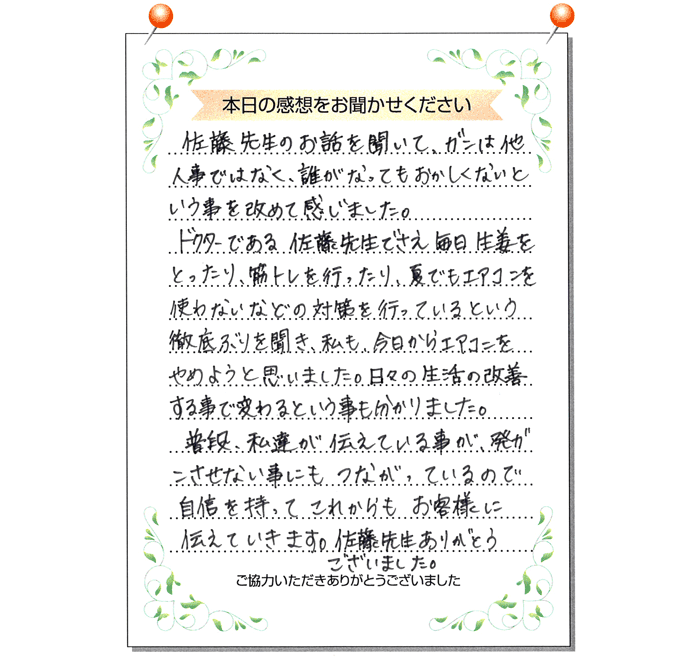 本日の感想をお聞かせください
佐藤先生のお話を聞いて、ガンは他
人事ではなく、誰がなってもおかしくないと
いう事を改めて感じました。
ドクターである佐藤先生でさえ毎日生姜を
とったり、筋トレを行ったり、夏でもエアコンを
使わないなどの対策を行っているという
徹底ぶりを聞き、私も、今日からエアコンを
やめようと思いました。日々の生活の改善
する事で変わるという事も分かりました。
普段、私達が伝えている事が、発ガ
ンさせない事にもつながっているので
自信を持ってこれからもお客様に
伝えていきます。佐藤先生ありがとう
ございました。
ご協力いただきありがとうございました